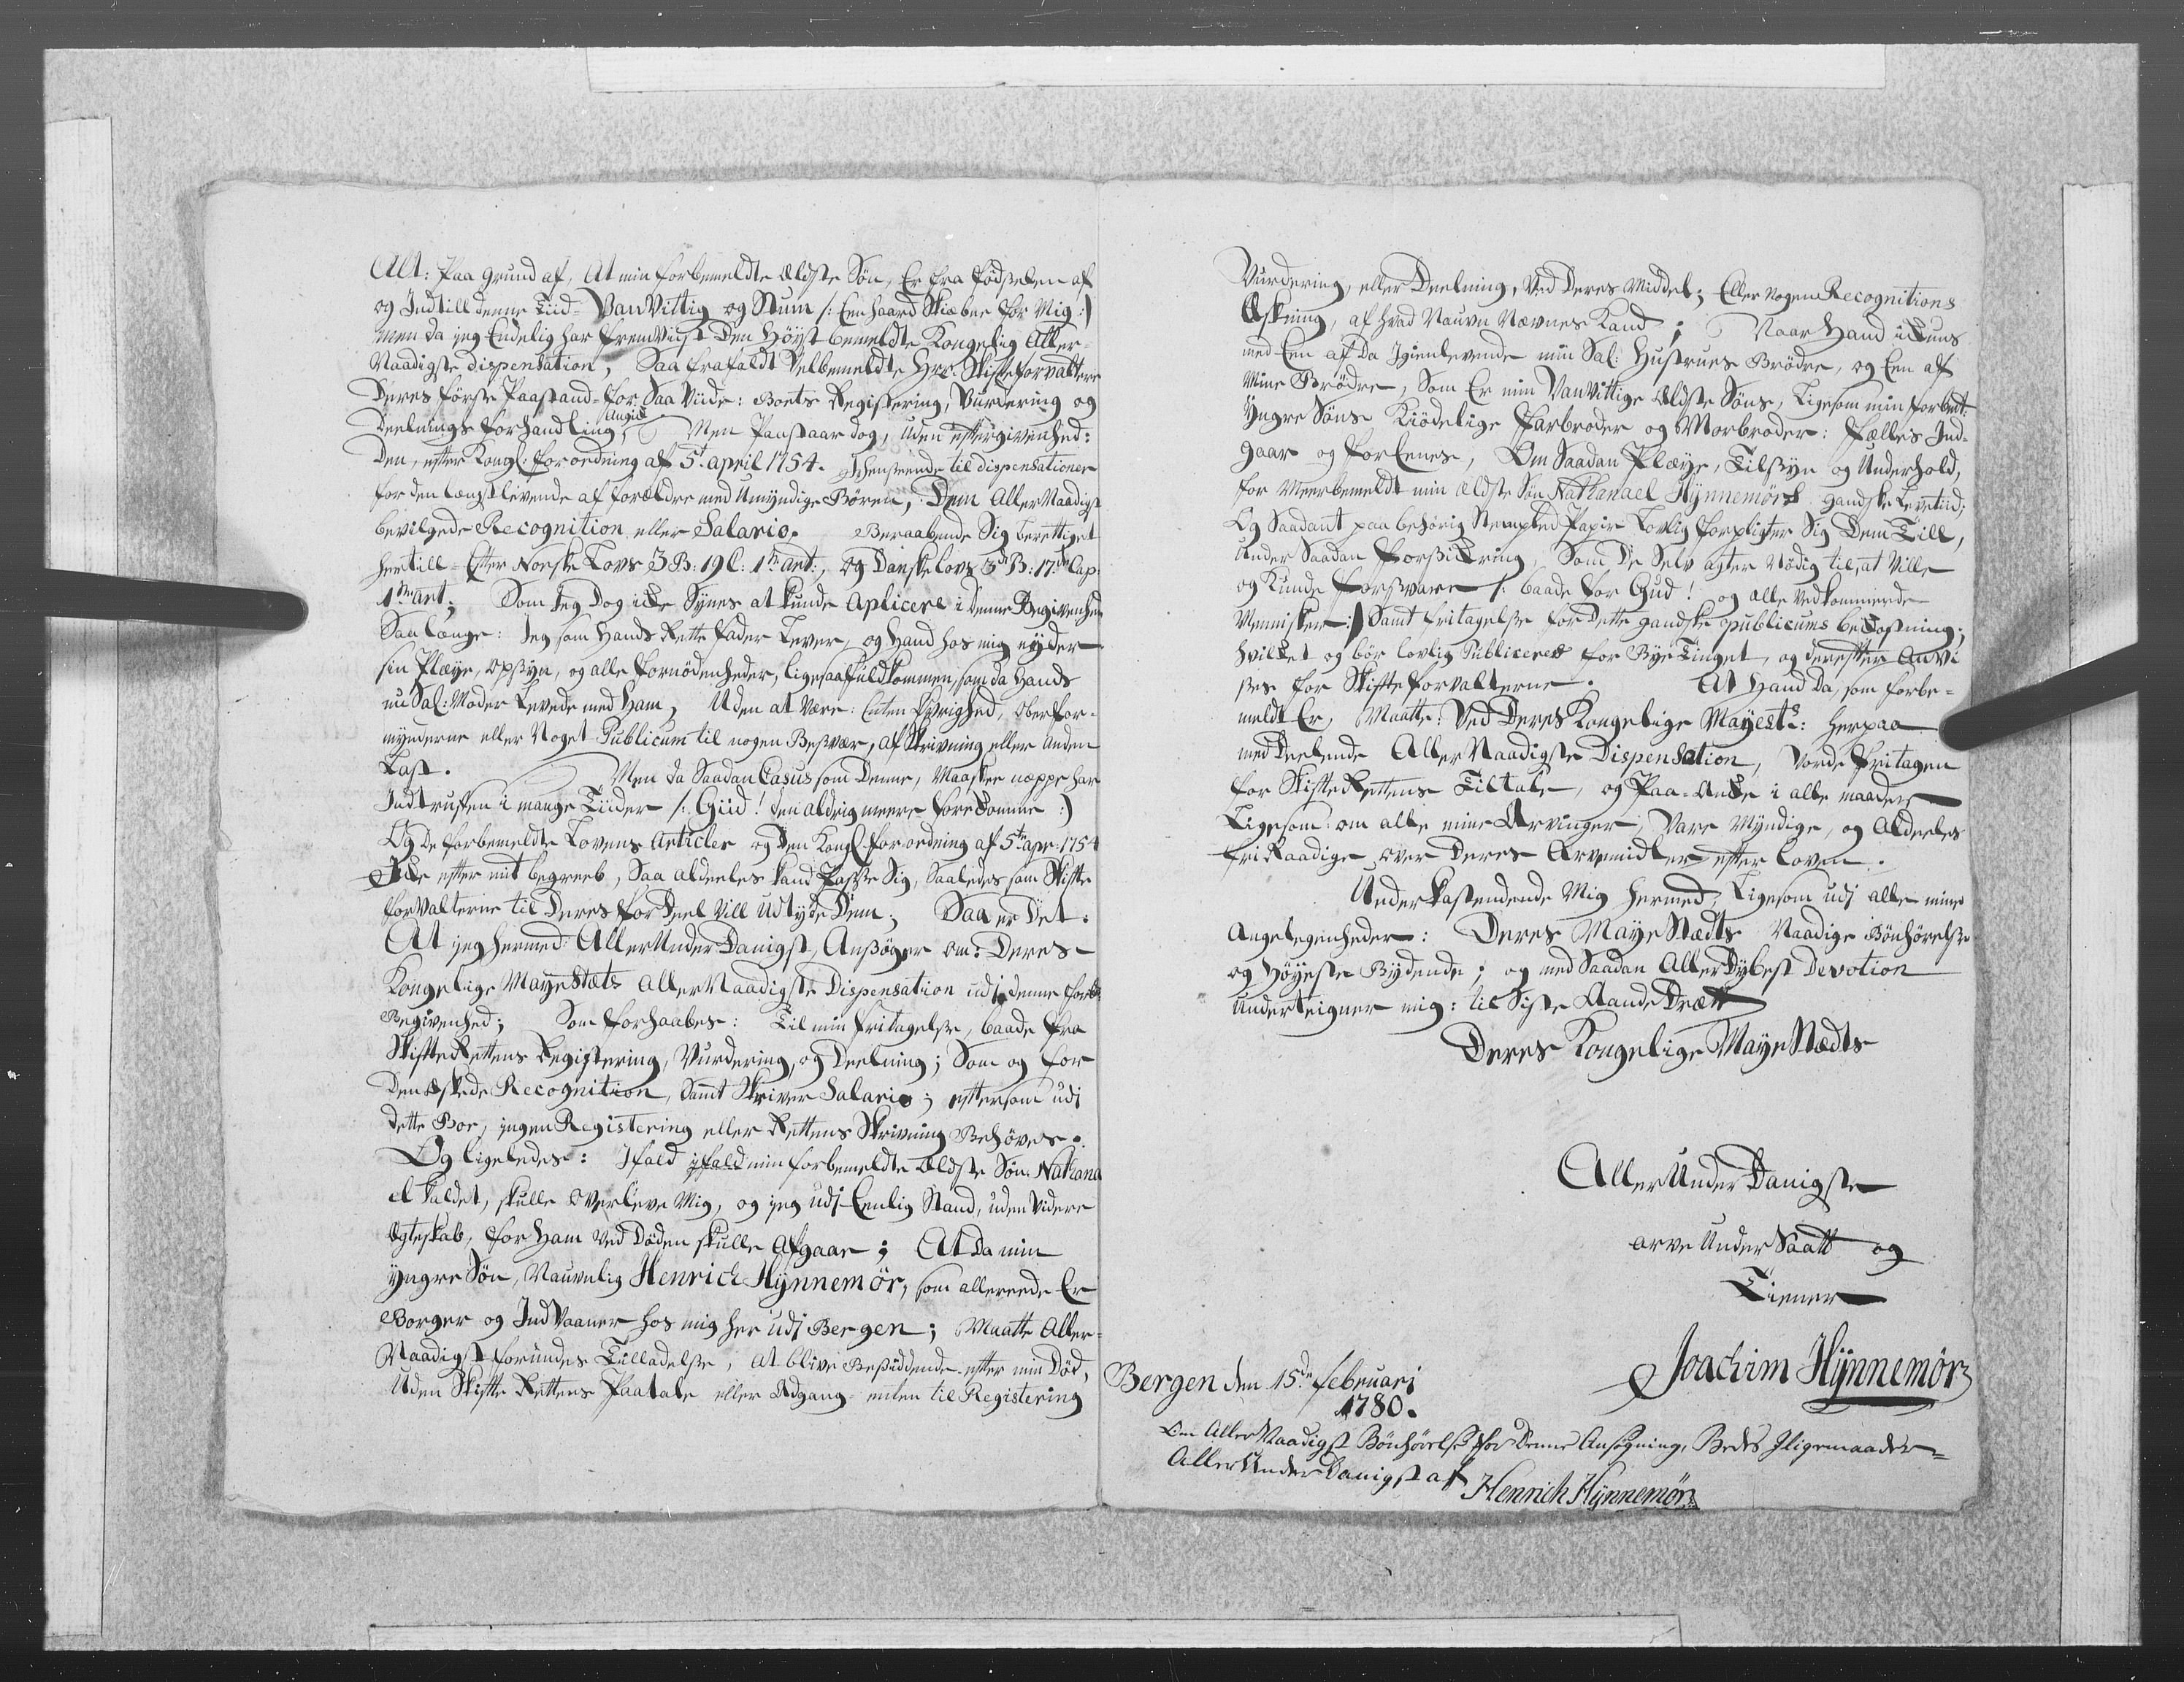 Alt: Paa grund af, At min forbemeldte Ældste Søn, Er fra födselen af
og Indtill denne Tiid = VanVittig og Stum /: Een haard Skiæbne for Mig :/
men da jeg Endelig har fremviist Den Höyst bemeldte Kongelig Aller-
Naadigste dispensation, Saa frafaldt Velbemeldte Hrr. Skifteforvaltere
Deres første Paastand = for Saa Viide: Boets Registering, Vurdering og
Deelnings forhandling, Angik Men Paastaar dog, uden eftergivenhed:
Den, efter Kongl: forordning af 5t april 1754. Henseende til dispensationer
for den længstlevende af forældre med Umyndige Børen, Dem AllerNaadigst
bevilgede Recognition eller Salario. Beraabende Sig berettiget
hertill = Efter Norske Lovs 3 B: 19 C: 1te art:, Og Danske lovs 5t B: 17de Cap:
1te art; Som Jeg Dog icke Synes at kunde Aplicere i denne Begivenhed
Saa længe: Jeg som Hands Rette fader Lever, og Hand hos mig nyder
sin Pleye, Opsyn, og alle fornödenheder, ligesaa fuldkommen, som da Hands
nu Sal: Moder Levede med Ham, Uden at være: Enten Øvrighed, Oberfor-
mynderne eller Noget Publicum til nogen Besvær, af Skrivning eller Anden
Last. Men da Saadan Casus som Denne, Maaskee neppe har
Indtruffen i mange Tiider /: Gud! den aldrig meere forekomme :/
Og De forbemeldte Lovens Articler og Den Kongl: forordning af 5te apr: 1754
Icke efter mit begreeb, Saa aldeeles kand Passe Sig, Saaledes som Skifte
forValterne til Deres fordeel Vill Udtyde Dem; Saa er Det:
At jeg hermed: AllerUnderDanigst, Ansöger om: Deres
Kongelige MayeStæts AllerNaadigste Dispensation udi denne forb:
Begivenhed; Som forhaabes: Til min fritagelse, baade fra
SkifteRettens Registering, Vurdering, og Deelning; Som og for
Den Æskede Recognition, Samt Skriver Salario; eftersom udi
dette Boe, ingen Registering eller Rettens Skrivning Behöves.
Og ligeledes: Ifald ifald min forbemeldte Ældste Søn Nathana
el kaldet, skulle overleve Mig, og jeg udi Eenlig Stand, uden videre
Egteskab, for Ham ved Döden skulle Afgaae; At Da min
Yngre Søn, Nauvnlig Henrich Hÿnnemör, som allereede Er
Borger og IndVaaner hos mig her udi Bergen; Maatte Aller-
Naadigst forundes Tilladelse, at blive Besiddende efter min Död,
Uden Skifte Rettens Paatale eller Adgang enten til Registering
Vurdering, eller Deelning, Ved Deres Middel; Eller Nogen Recognitions
Æskning, af hvad Navn Nævnes kand; Naar Hand ickuns
med Een af Da Igienlevende min Sal: Hustrues Brödre, og Een af
Mine Brödre, Som Er min VanVittige Ældste Söns, Ligesom min forbmt:
Yngre Söns Kiödelige Farbroder og Morbroder: fælles Ind-
gaar og forEenes, Om Saadan Pleye, Tilsyn og Underhold,
for Meerbemeldt min Ældste Søn Nathanael Hÿnnemörs gandske Levetiid;
Og Saadant paa behörig Stempled Papir Lovlig forpligter Sig Dem Till,
Under Saadan Forsickring, Som De Selv agter Nödig til, at Ville
og Kunde forsvare /: baade for Gud! og alle Vedkommende
Mennisker :/ Samt fritagelse for Dette gandske publicums bekostning;
hvilcket og bör lovlig Publiceres for Bye Tinget, og derefter Anvi
ses for Skifteforvalterne. At Hand Da, som forbe-
meldt Er, Maatte: Ved Deres Kongelige Mayestz: herpaa
meddeelende AllerNaadigste Dispensation, Vorde fritagen
for SkifteRettens Tiltale, og Paa-Ancke i alle maader
Ligesom om alle mine Arvinger, Vare Myndige, og Aldeeles
fri Raadige over Deres Arvemidler efter loven.
Underkastendende Mig hermed, Ligesom udi alle mine
Angelegenheder: Deres MayeStædts Naadige Bönhörelse
og Höyeste Bydende; og med Saadan AllerDybest Devotion
Underteigner mig: til Siste AandeDræt
Deres Kongelige MayeStædts
AllerUnderDanigste
arve UnderSaatt og
Tiener
Joachim Hÿnnemör
Bergen den 15de februari
1780.
Om AllerNaadigst Bönhörelse for Denne Ansögning, Bedes Iligemaader
AllerUnderDanigst af Henrich Hÿnnemör